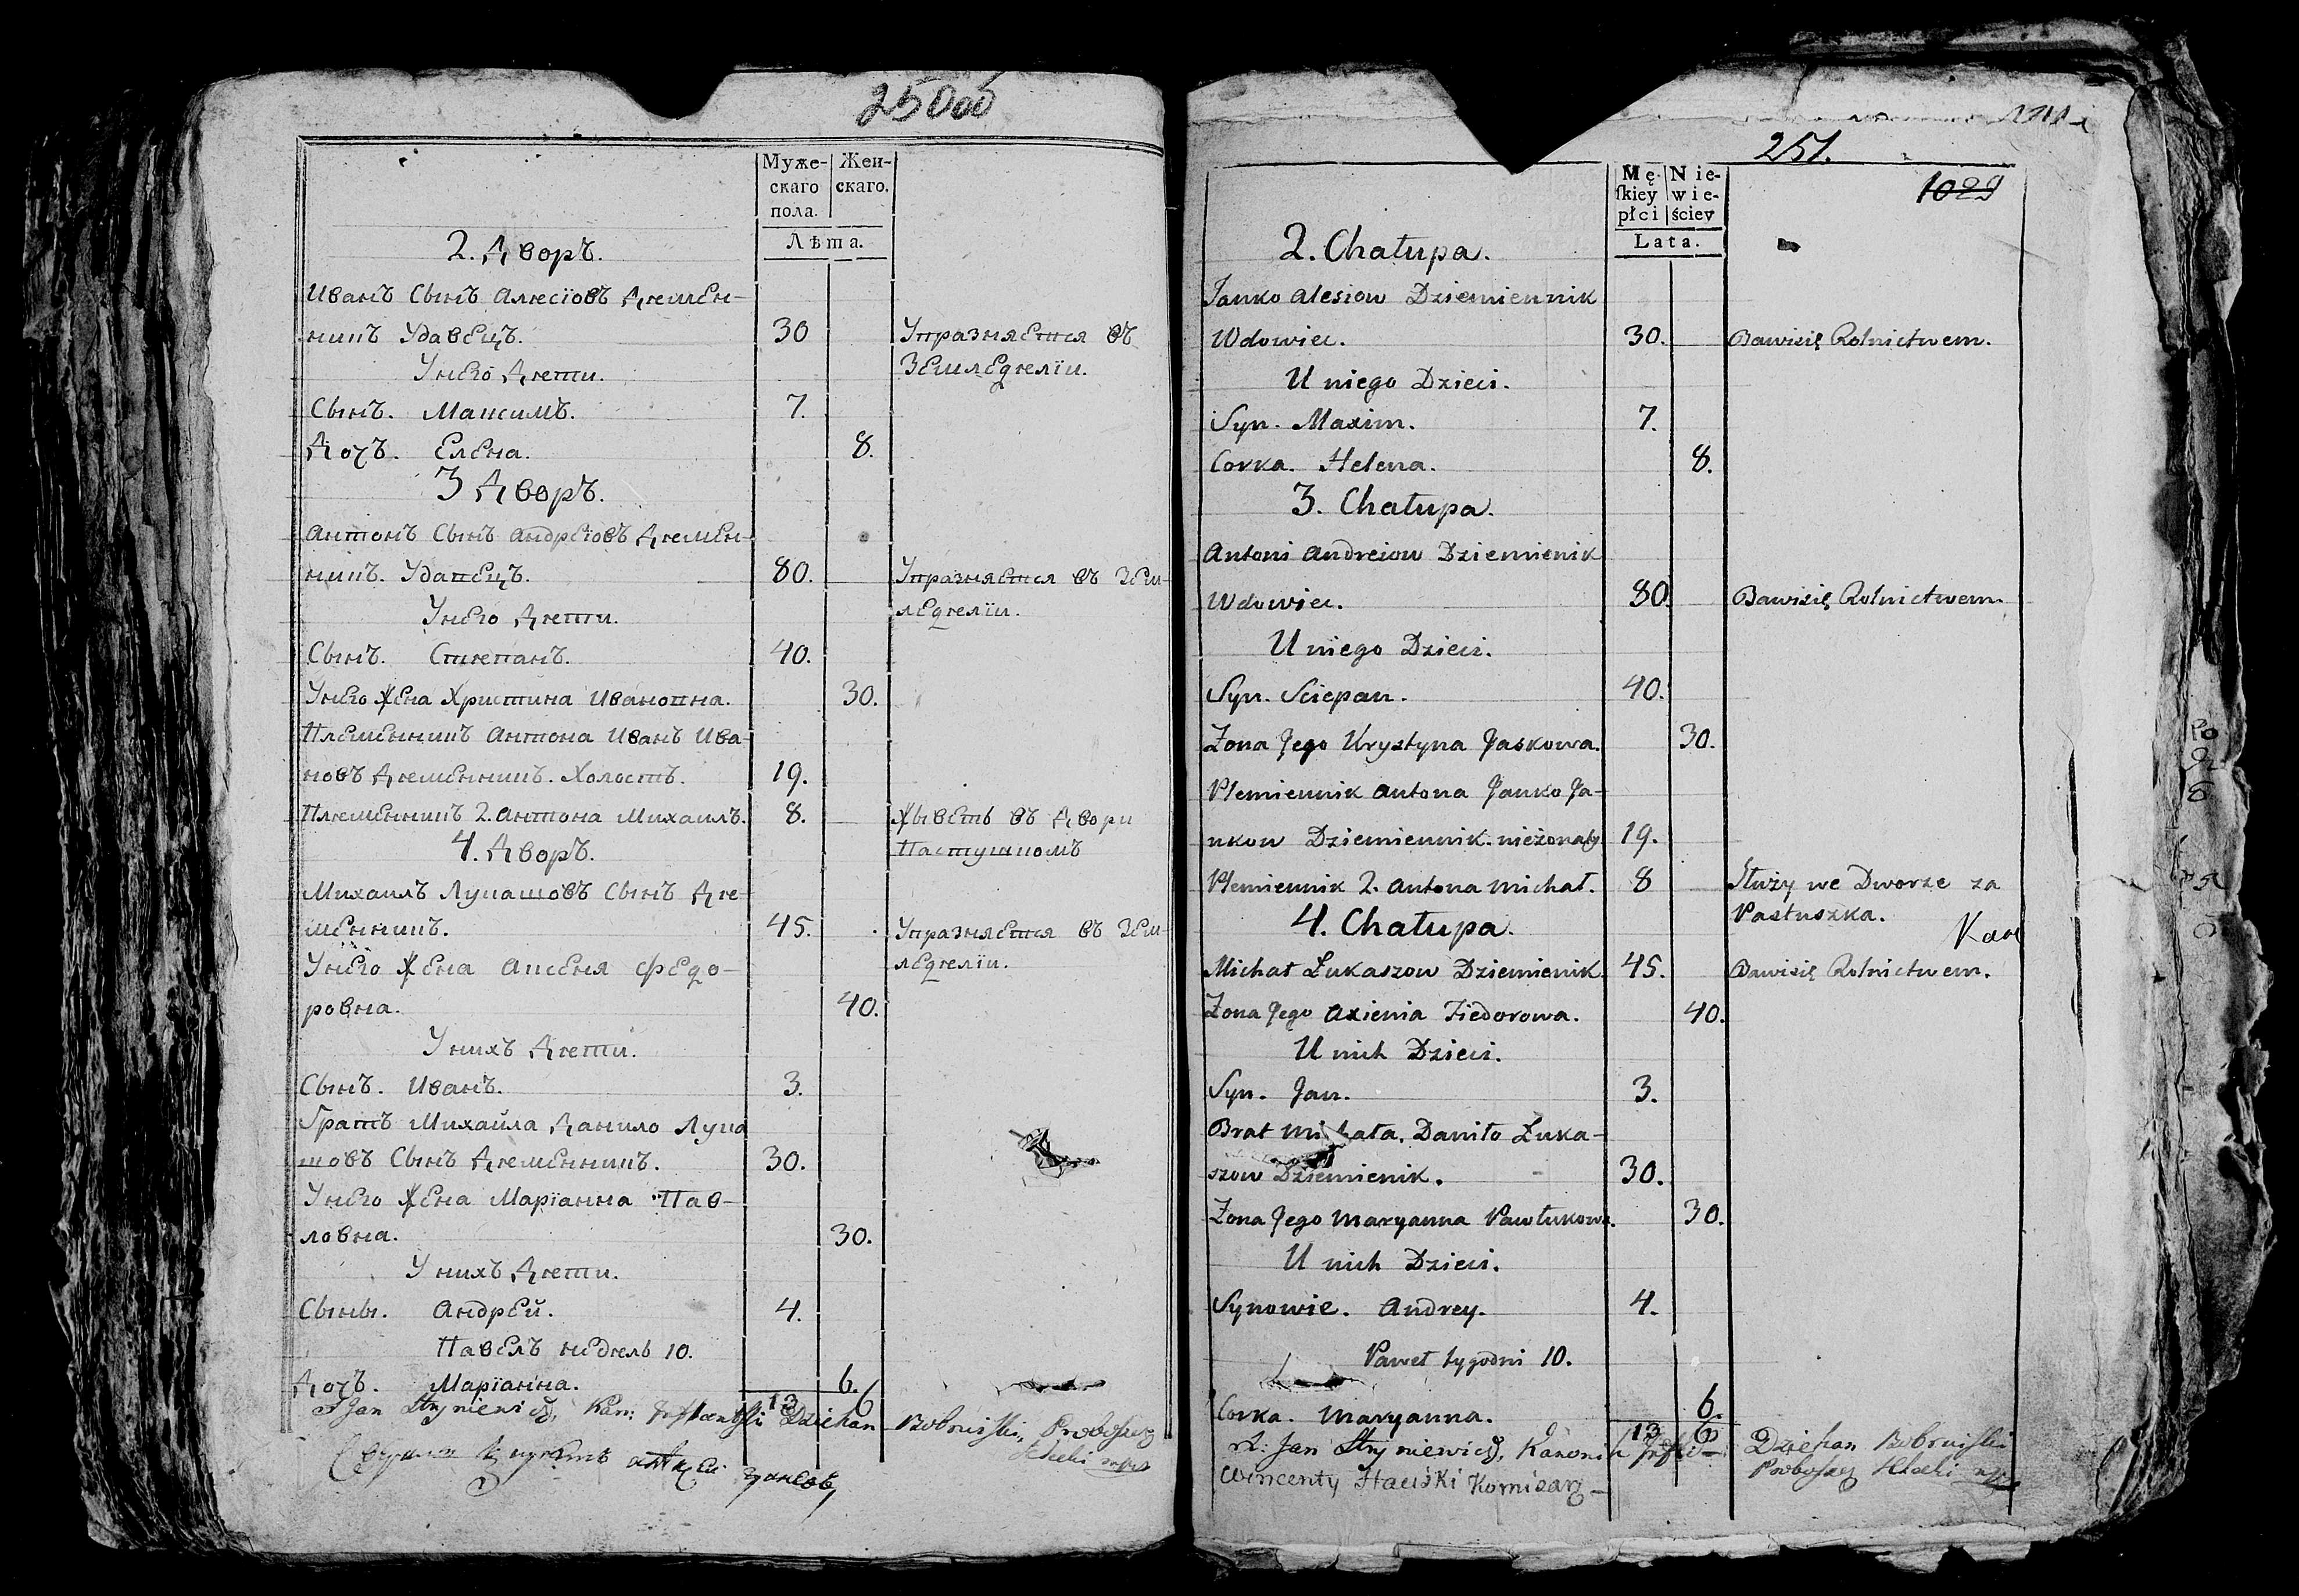 250об
Муже-
скаго
пола.
Жен-
скаго.
Лѣта.
2. Дворъ.
Иванъ Сынъ Алесіовъ Дземен-
никъ Удавецъ. 30 Упразняется въ
Унего Дѣти. Земледѣліи.
Сынъ. Максимъ. 7.
Дочъ. Елена. 8.
3 Дворъ.
Антонъ Сынъ Андреіовъ Дѣмен-
никъ. Удавецъ. 80. Упразняется въ Зем-
Унего Дѣти. ледѣліи.
Сынъ. Стѣпанъ. 40.
Унего Жена Христина Ивановна. 30.
Племенникъ Антона Иванъ Ива-
новъ Дѣменникъ. Холостъ. 19.
Племенникъ 2. Антона Михаилъ. 8. Жыветь въ Двори
4. Дворъ. Пастушкомъ
Михаилъ Лукашовъ Сынъ Дѣ-
менникъ. 45. Упразняется въ Зем-
Унего Жена Аксеня Федо- ледѣліи.
ровна. 40.
Унихъ Дѣти.
Сынъ. Иванъ. 3.
Братъ Михайла Данило Лука
шовъ Сынъ Дѣменникъ. 30.
Унего Жена Маріанна Пав-
ловна. 30.
Унихъ Дѣти.
Сыны. Андрей. 4.
Павелъ недѣль 10.
Дочъ. Маріанна. 6.
13 6
Jan Dziekan Bobruiski, Proboszcz
251.
1029
Mę-
skiey
płci
Nie-
wie-
ściey
Lata.
2. Chałupa.
Janko Alesiow Dziemiennik
Wdowiec. 30. Bawi się Rolnictwem.
U niego Dzieci.
Syn. Maxim. 7.
Corka. Helena. 8.
3. Chałupa.
Antoni Andreiow Dziemienik
Wdowiec. 80. Bawi się Rolnictwem
U niego Dzieci.
Syn. Sciepan. 40.
Zona Jego Krystyna Jaskowa. 30.
Plemiennik Antona Janko Ja-
nkow Dziemiennik. nieżonaty 19.
Plemiennik 2. Antona Michał. 8 Służy we Dworze za
4. Chałupa. Pastuszka.
Michał Łukaszow Dziemienik 45. Bawi się Rolnictwem.
Zona Jego Axienia Fiedorowa. 40.
U nich Dzieci.
Syn. Jan. 3.
Brat Michała. Daniło Łuka-
szow Dziemienik. 30.
Zona Jego Maryanna Pawlukowa. 30.
U nich Dzieci.
Synowie. Andrey. 4.
Paweł tygodni 10.
Corka. Maryanna. 6.
13 6
Jan Kanonik Dziekan Bobruiski
Proboszcz
Wincenty Komisarz